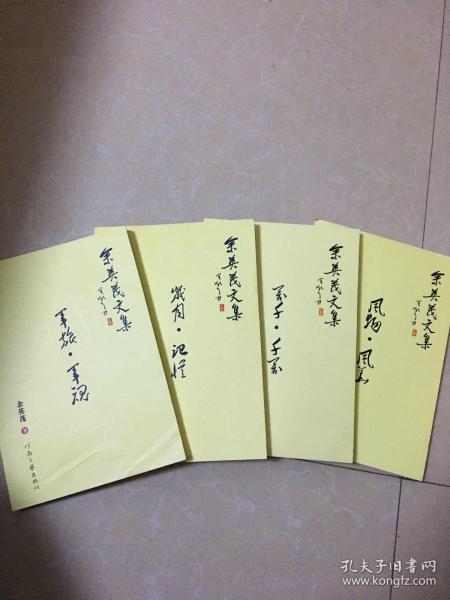 余英茂文集
军旅·军魂
余英茂 著
河南文艺出版社
余英茂文集
岁月·记忆
余英茂文集
余英茂文集
孔夫子旧书网
www.kongfz.com